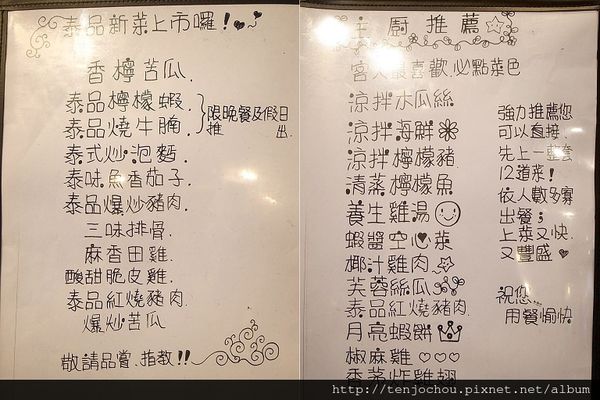 泰品新菜上市囉!
香檸苦瓜.
泰品檸檬蝦
泰品燒牛腩
限晚餐及假日
推出.
泰式炒泡麵
泰味魚香茄子.
泰品爆炒豬肉.
三味排骨.
麻香田雞.
酸甜脆皮雞.
泰品紅燒豬肉
爆炒苦瓜
敬請品嘗.指教!!
主廚推薦
客人最喜歡必點菜色
涼拌木瓜絲
涼拌海鮮
涼拌檸檬豬
清蒸檸檬魚
養生雞湯
蝦醬空心菜
椰汁雞肉
芙蓉絲瓜
泰品紅燒豬肉.
月亮蝦餅
椒麻雞
香茅炸雞翅
強力推薦您
可以直接.
先上一整套
12道菜!
依人數多寡
出餐;
上菜又快.
又豐盛
祝您...
用餐愉快
http://tenjochou.pixnet.net/album